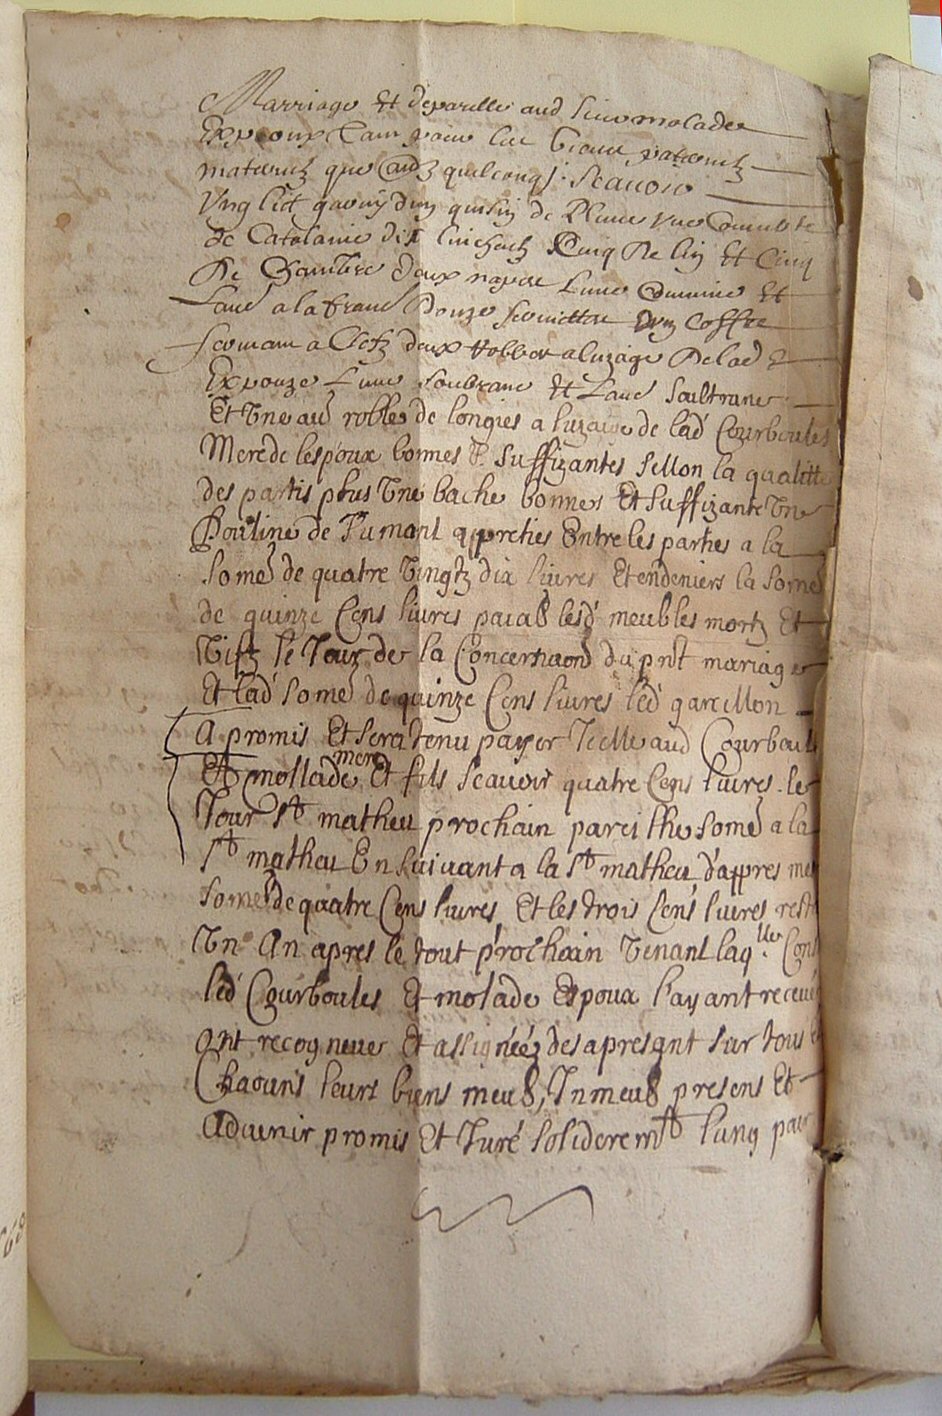 Marriage Et d'epareille aud sieur molade
Expoux tant pour les biens paternelz
maternelz que aud quelconqs. Scavoir
Ung lict garny d'un quisin de Plume une Couverte
de Catalanie dix linceulz Cinq De lin Et Cinq
De Chambre deux nappe Lune Commune Et
Laue a la Vraue Douze serviettes Ung Coffre
fermant a Clefz deux Robbes a luzage De lad
Expouze L'une soubrane Et Laue Soultrane
Et Une au robbe de longies a luzaige de lad Courboules
Mere de lespoux bonnes & Suffizantes Sellon la qualitte
des partis plus Une bache bonne Et Suffizante Une
Pouline de Tumant appreties Entre les parties a la
Some de quatre Vingtz dix livres Et en deniers la Some
de quinze Cens livres paiab lesd meubles mortz Et
Vifz le Jour de la Concernaon du pnt mariage
Et lad some de quinze Cens livres led garcillon
A promis Et sera tenu payer Icelle aud Courboules
Et mollade mere Et fils Scavoir quatre Cens livres le
Jour St matheu prochain pareilhe Some a la
St matheu En suivant a la St matheu d'appres mes
Some de quatre Cens livres Et les trois Cens livres rest
Un An apres le tout prochain Venant laqlle Con
led Courboules Et molade Espoux l'ayant receue
ont recogneue Et assignéé des apresant sur tous
Chacuns leurs biens meub, Inmeub presens Et
Advenir promis Et Juré solideremt lung par